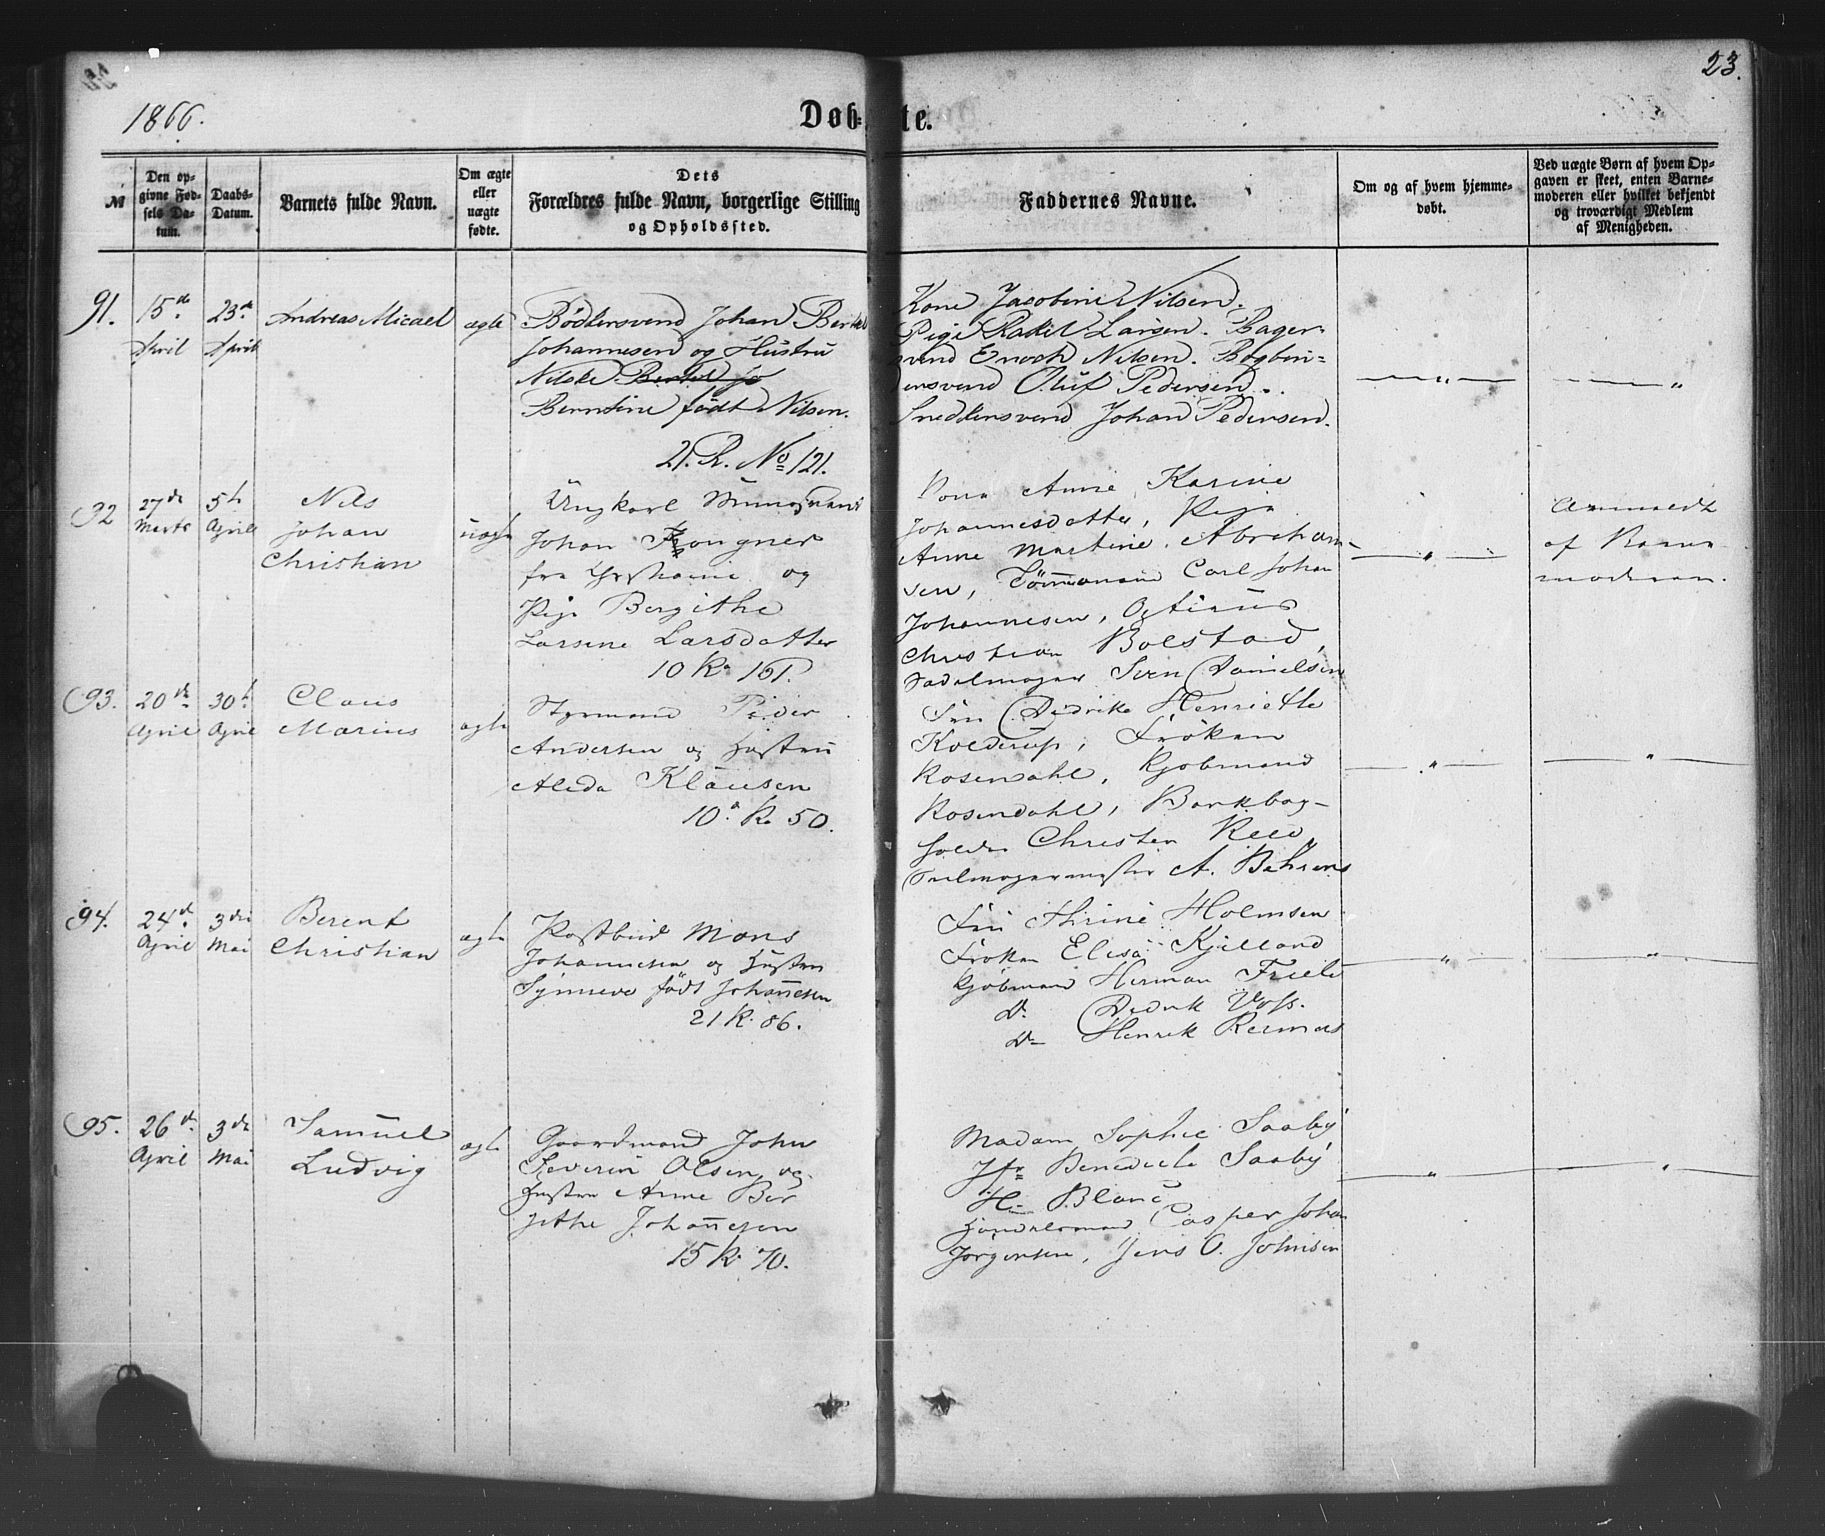 23.
1866.
Døb-te.
№
Den opgivne Fødsels Datum.
Daabs-Datum.
Barnets fulde Navn.
Om ægte eller uægte fødte.
Dets Forældres fulde Navn, borgerlige Stilling og Opholdssted.
Faddernes Navne.
Om og af hvem hjemmedøbt.
Ved uægte Børn af hvem Opgaven er skeet, enten Barnemoderen eller hvilket bekjendt og troværdigt Medlem af Menigheden.
91.
15de April
23de April
Andreas Micael
ægte
Bødkersvend Johan Bertel
Johannesen og Hustru
Nilske Bertel Jo
Berntine født Nilsen.
21. R. No 121.
Kone Jacobine Nilsen.
Pige Rakel Larsen. Bager
svend Enoch Nilsen. Bogbin=
dersvend Oluf Pedersen.
Snedkersvend Johan Pedersen.
92
27de Marts
5te April
Nils
Johan
Christian
uægte
Ungkarl
Johan Kongner
fra og
Pige Bergithe
Larsine Larsdatter
10 R. 161.
Kone Anne Karine
Johannesdatter, Pige
Anne Martine Abraham-
sen, Tømmermand Carl Johan
Johannesen,
Christian Bolstad,
Sadelmager Sven Danielsen
Anmeldt
af Barne
moderen.
93.
20de April
30te April
Claus
Marius
ægte
Styrmand Peder
Andersen og Hustru
Aleda Klausen
10. R. 50.
Fru Didrike Henriette
Kolderup, Frøken
Rosendahl, Kjøbmand
Rosendahl, Bankbog-
holder Christen
Seilmagermester A. Behrens
94.
24de April
3die Mai
Berent
Christian
ægte
Postbud Mons
Johannesen og Hustru
Synneve født Johannesen
21 R. 86.
Fru Thrine Holmsen
Frøken Elisa Kjelland
Kjøbmand Herman Friele
Do Didrik Voss.
Do Henrik Reimers
95.
26de April
3die Mai
Samuel
Ludvig
ægte
Gaardmand John
Severin Olsen og
Hustru Anne Ber
githe Johannesen
15 R. 70.
Madam Sophie Saaby
Jfr Benedicte Saaby
H. Blanc
Handelsmand Casper Johan
Jørgensen, Jens O. Johnsen